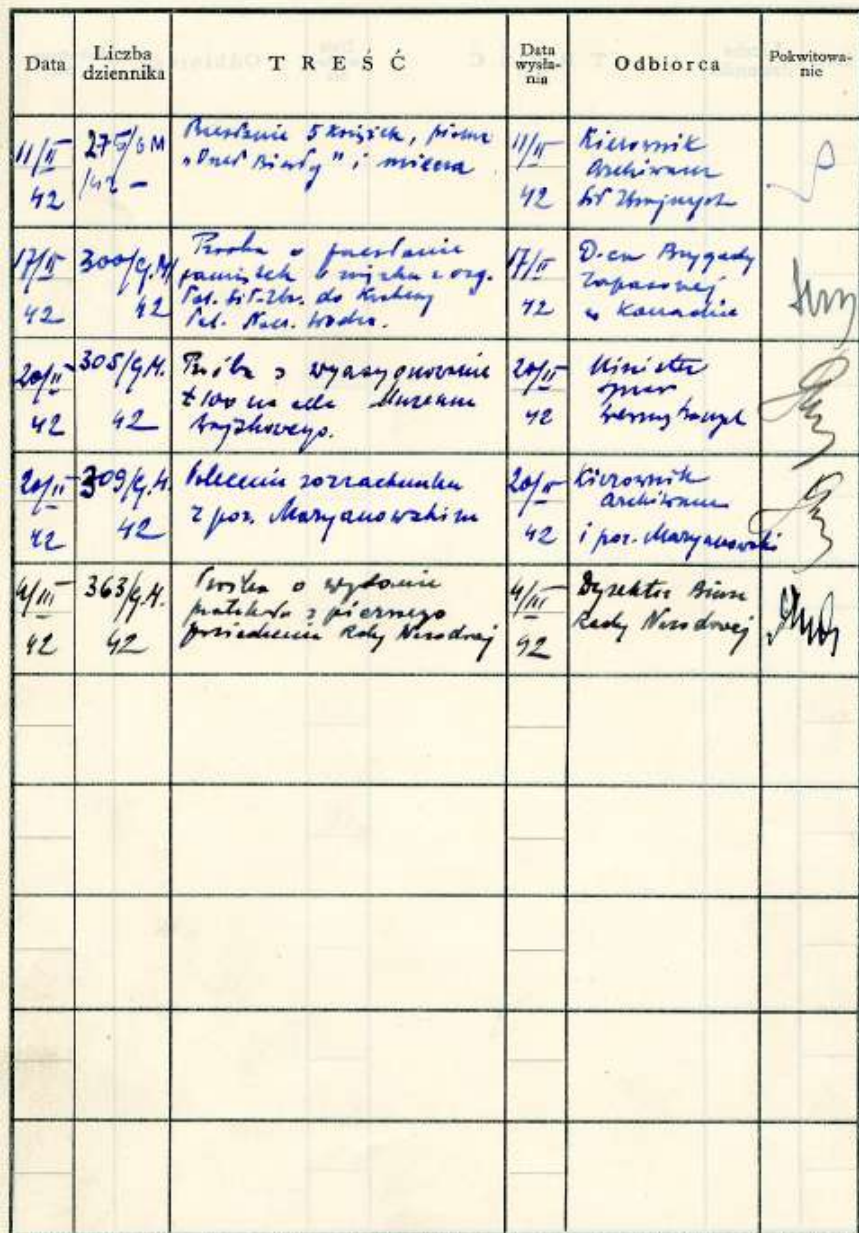 Data
Liczba dziennika
TREŚĆ
Data wysła-nia
Odbiorca
Pokwitowa-nie
11/II 42
275/GM /42 -
Przesłanie 5 książek, pisma
„Orzeł Biały" i miecza
11/II 42
Kierownik
Archiwum
Sił Zbrojnych
17/II 42
300/G.M/ 42
Prośba o przesłanie
pamiątek w związku z org.
Pol. Sił. Zbr. do
Nacz. Wodza.
17/II 42
D-ca Brygady
Zapasowej
w Kanadzie
20/II 42
305/G.M. 42
Prośba o wyasygnowanie
£100 na cele Muzeum
Wojskowego.
20/II 42
Minister
spraw
wewnętrznych
20/II 42
309/G.M. 42
Polecenie rozrachunku
z por. Maryanowskim
20/II 42
Kierownik
Archiwum
i por. Maryanowski
4/III 42
363/G.M. 42
Prośba o wydanie
protokołu z pierwszego
posiedzenia Rady Narodowej
4/III 42
Dyrektor Biura
Rady Narodowej